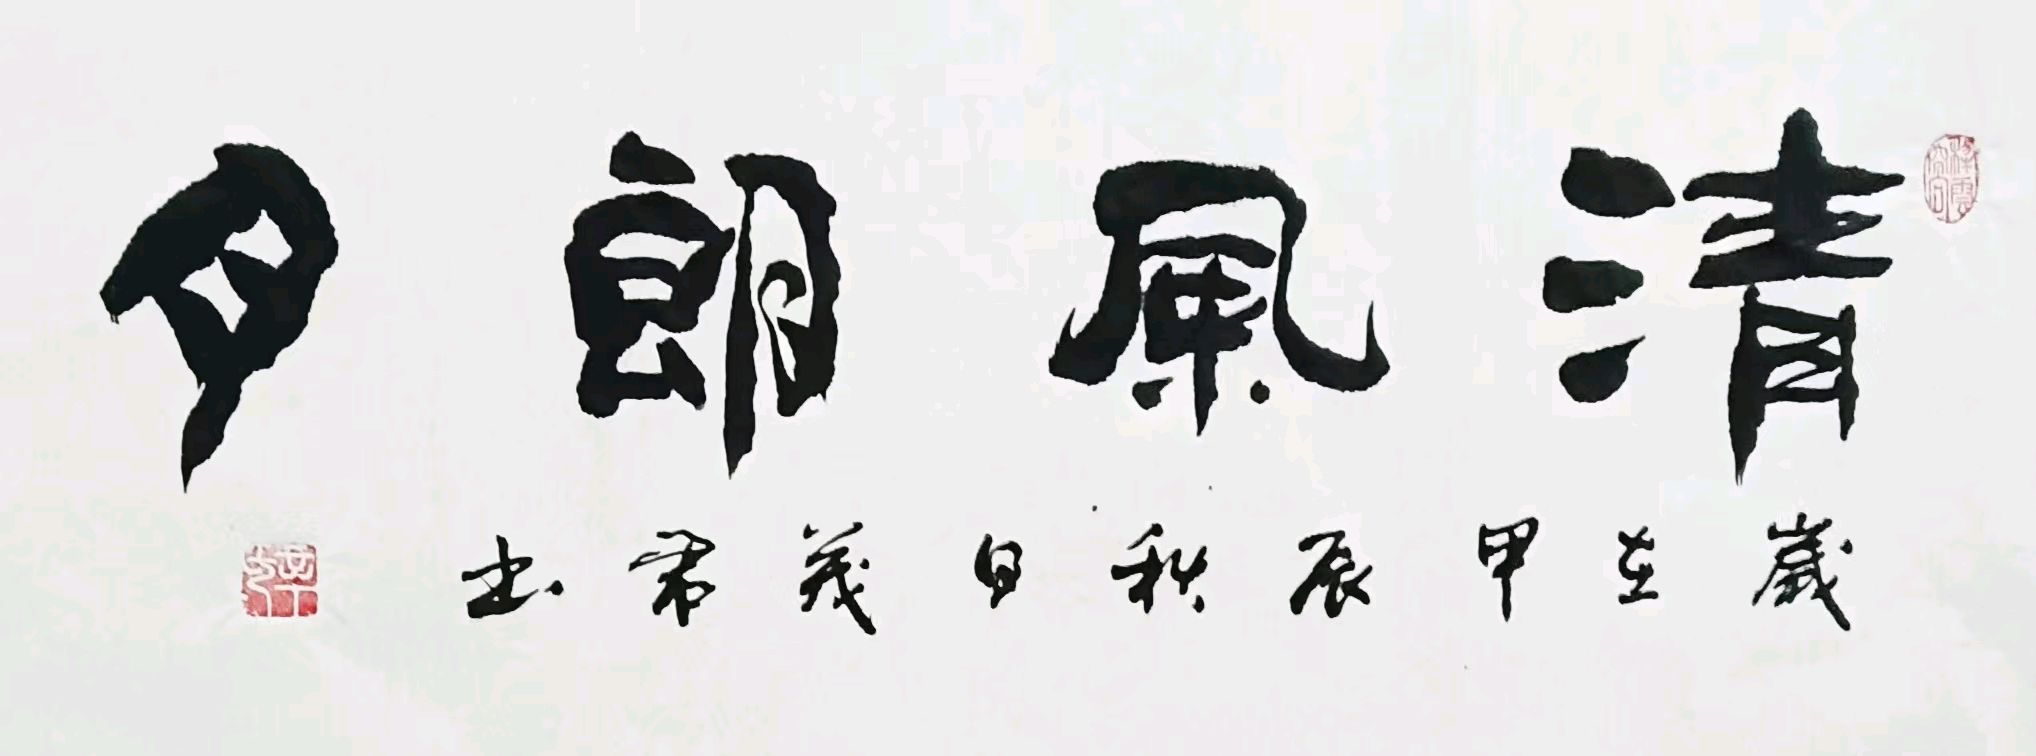 清風朗月
歲在甲辰秋日茂書